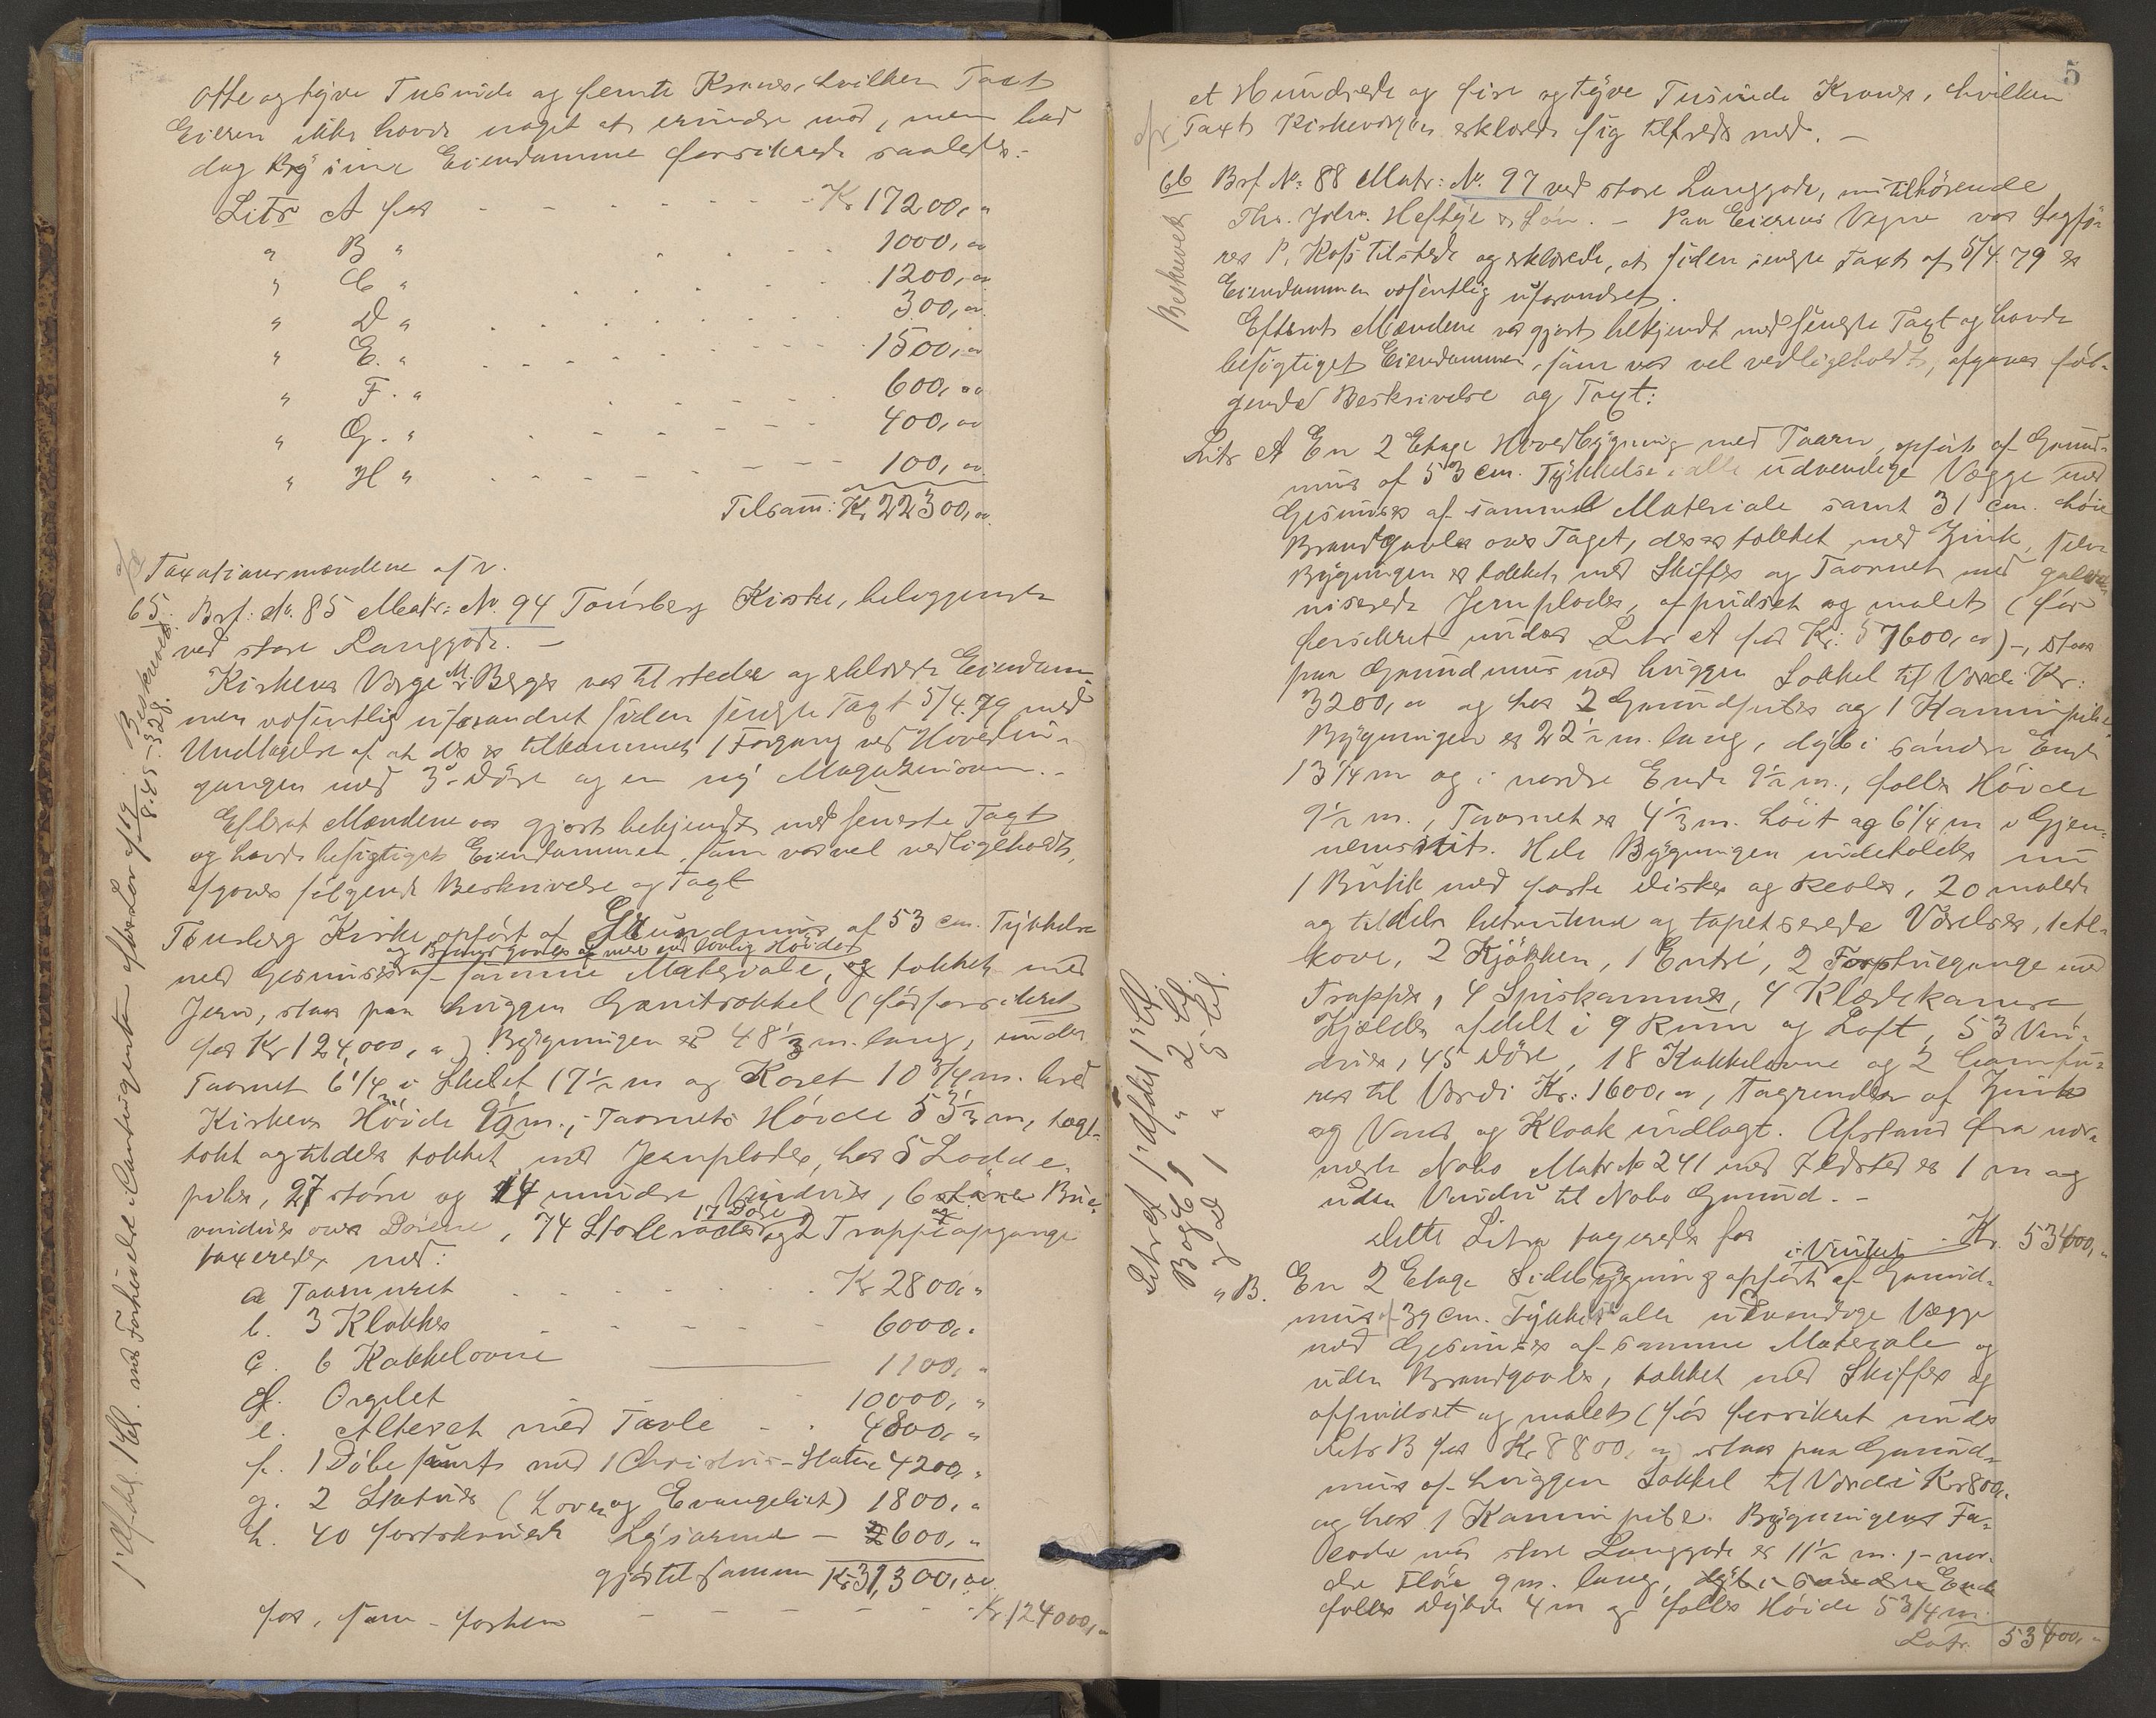 otte og tyve Tusinde og femti Kroner, hvilken Taxt
Eieren ikke havde noget at erindre mod, men lod
dog sine Eiendomme forsikrede saaledes:
Litr A for - - - Kr 17200,"
" B " 1000,"
" C " 1200,"
" D " 300,"
" E. " 1500,"
" F. " 600,"
" G. " 400,"
" H " 100,"
Tilsam: Kr 22300,"
Taxationsmændene afr.
65. Brf: No. 85 Matr: No. 94 Tønsberg Kirke, beliggende
ved store Langgade. -
Kirkens Værge Berger var tilstede og erklærede Eiendom-
men væsentlig uforandret siden seneste Taxt 5/4.79 med
Undtagelse af at der er tilkommet 1 Forgang ved Hovedind-
gangen med 3 Døre og en ny Magasinovn. -
Efterat Mændene var gjort bekjendt med seneste Taxt
og havde besigtiget Eiendommen, som var vel vedligeholdt,
afgaves følgende Beskrivelse og Taxt
Tønsberg Kirke opført af Grundmur af 53 cm. Tykkelse
og Brandgavle af mere end lovlig Høide
med Gesimser af samme Materiale, og tækket med
Jern, staar paa huggen Granitsokkel (før forsikret
for Kr 124,000,") Bygningen er 48 1/3 m. lang, under
Taarnet 6 1/4, i Skibet 17 1/2 m og Koret 10 3/4 m. bred
Kirkens Høide 9 1/2 m., Taarnets Høide 53 1/3 m, tagt-
tækt og tildels tækket med Jernplader, har 5 Lodde-
piber, 27 større og 14 mindre Vinduer, 6 større Bue-
vinduer over Dørene, 74 Stolerader 17 Døre og 2 Trappeopgange
taxeredes med:
a Taarnuret Kr 2800,"
b. 3 Klokker 6000,"
c. 6 Kakkelovne 1100,"
d. Orgelet 10000,"
e. Alteret med Tavle 4800,"
f. 1 Døbefont med 1 Christus-Statue 4200,"
g. 2 Statuer (Loven og Evangeliet) 1800,"
h. 40 fastskruede Lysarme - 600,"
gjør tilsammen Kr 31,300,"
for, som - forhen - - - Kr 124000,"
Beskrevet
8.45-328.
1 Afdel. 1 Kl. med Forhøielse i Contingenten efter Lov af
5
et Hundrede og fire og tyve Tusinde Kroner, hvilken
Taxt Kirkeværgen erklærede sig tilfreds med. -
66 Brf No: 88 Matr: No. 97 ved store Langgade, nu tilhørende
Ths. Johs. Heftye & Søn. - Paa Eierens Vegne var Sagfø-
rer P. Kos tilstede og erklærede, at siden seneste Taxt af 5/4.79 er
Eiendommen væsentlig uforandret.
Efterat Mændene var gjort bekjendt med seneste Taxt og havde
besigtiget Eiendommen, som var vel vedligeholdt, afgaves føl-
gende Beskrivelse og Taxt:
Litr A En 2 Etage Hovedbygning med Taarn, opført af Grund-
mur af 53 cm. Tykkelse i alle udvendige Vægge med
Gesimser af samme Materiale samt 31 cm. høie
Brandgavle over Taget, der er tækket med Zink, selve
Bygningen er tækket med Skiffer og Taarnet med galva-
niserede Jernplader, afpudset og malet (før
forsikret under Litr A for Kr: 57600,") -, staar
paa Grundmur med huggen Sokkel til Værdi Kr:
3200," og har 2 Grundpiber og 1 Kaminpibe
Bygningen er 22 1/2 m. lang, dyb i søndre Ende
13 1/4 m og i nordre Ende 9 1/2 m., falder Høide
9 1/2 m., Taarnet er 4 1/3 m. høit og 6 1/4 m i Gjen-
nemsnit. Hele Bygningen indeholder nu
1 Butik med faste Diske og Reoler, 20 malede
og tildels betrukne og tapetserede Værelser, 1 Al-
kove, 2 Kjøkken, 1 Entré, 2 Forstuegange med
Trapper, 4 Spiskammer, 4 Klædekamre
Kjælder afdelt i 9 Rum og Loft, 53 Vin-
duer, 45 Døre, 18 Kakkelovne og 2 Comfu-
rer til Værdi Kr: 1600,", Tagrender af Zink
og Vand og Kloak indlagt. Afstand fra nær-
meste Nabo Matr No 241 med Ildsted er 1 m og
uden Vindu til Nabo Grund. -
dette Litra taxeredes for - Kr. 53400,"
" B. En 2 Etage Sidebygning i Vinkel opført af Grund-
mur af 39 cm. Tykkelse i alle udvendige Vægge
med Gesimser af samme Materiale og
uden Brandgavle, tækket med Skiffer og
afpudset og malet (før forsikret under
Litr B for Kr 8800,") staar paa Grund-
mur af huggen Sokkel til Værdi Kr 800,"
og har 1 Kaminpibe. Bygningens Fa-
cade mod store Langgade er 11 1/2 m., - nor-
dre Fløi 9 m. lang, dyb i søndre Ende
falder Dybde 4 m og falder Høide 5 3/4 m
Latr. 53400,"
Beskrevet
Litr A 1 Afdel 1 Kl
B og C 1 " 2 Kl.
D 1 " 5 Kl.